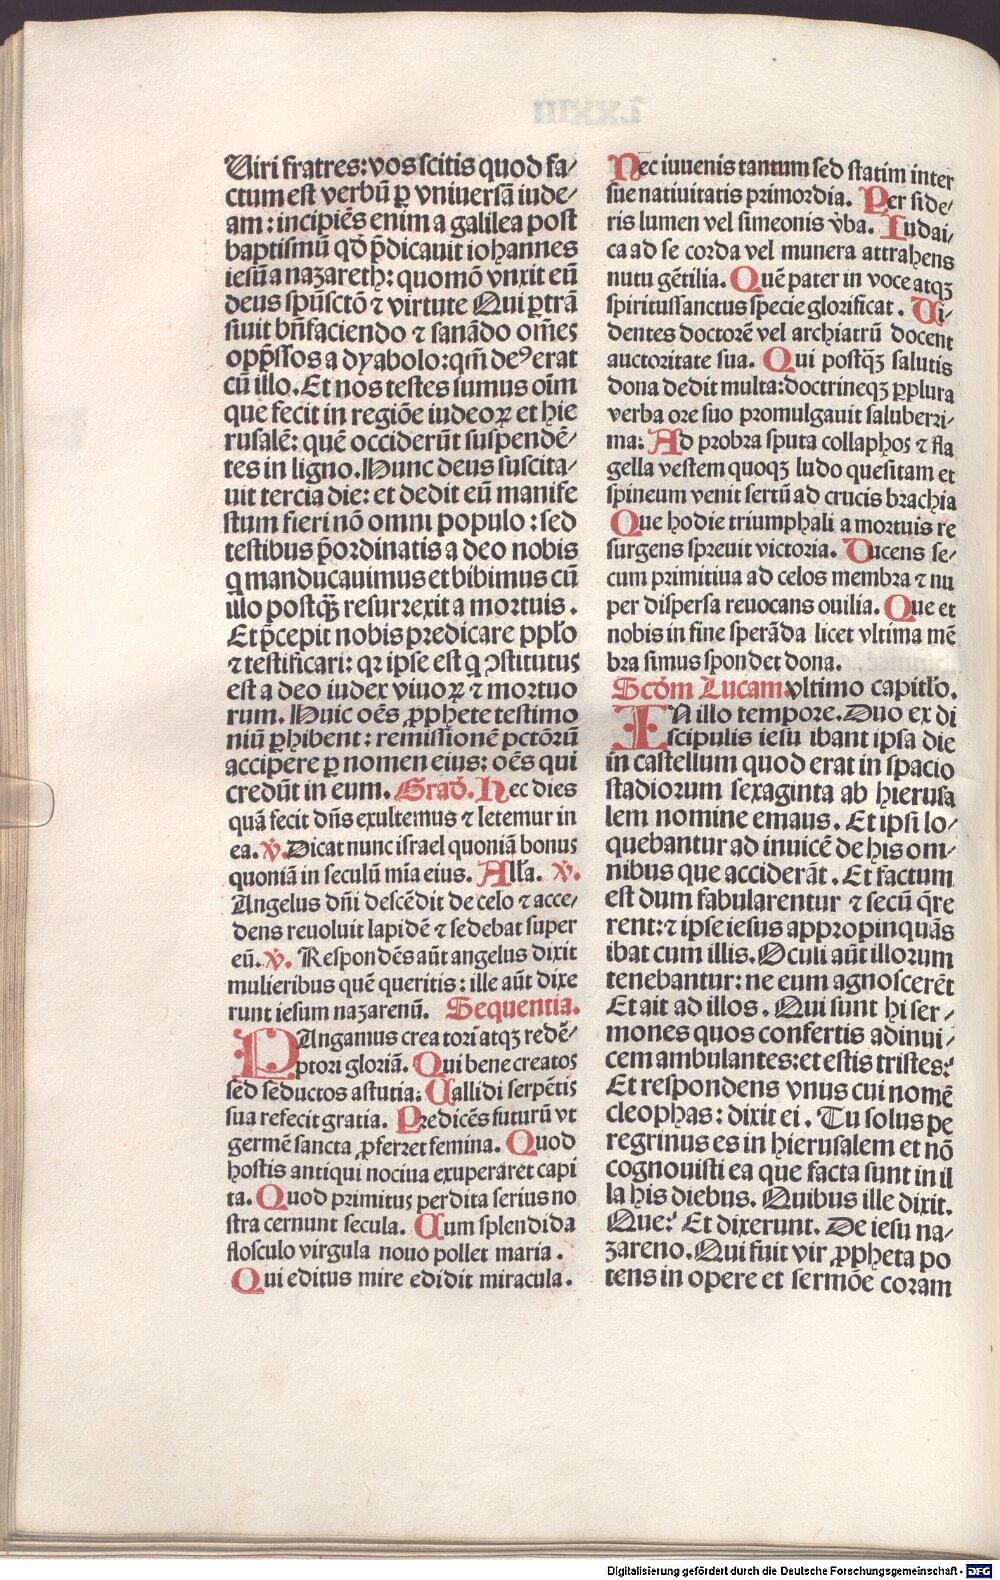 Viri fratres: vos scitis quod fa⸗
ctum est verbū ꝑ vniuersā iude⸗
am: incipiēs enim a galilea post
baptismū qd̄ p̄dicauit iohannes
iesū a nazareth: quomō vnxit eū
deus spūsctō ⁊ virtute Qui ꝑtrā
siuit bn̄faciendo ⁊ sanādo om̄es
opp̄ssos a dyabolo: qm̄ deꝰ erat
cū illo. Et nos testes sumus oīm
que fecit in regiōe iudeoꝝ et hie
rusalē: quē occiderūt suspendē⸗
tes in ligno. Hunc deus suscita⸗
uit tercia die: et dedit eū manife
stum fieri nō omni populo: sed
testibus p̄ordinatis a deo nobis
q manducauimus et bibimus cū
illo postꝙ̄ resurrexit a mortuis.
Et p̄cepit nobis predicare ppło
⁊ testificari: qꝛ ipse est q ꝯstitutus
est a deo iudex viuoꝝ ⁊ mortuo
rum. Huic oēs ꝓphete testimo
niū ꝑhibent: remissionē pctōrū
accipere ꝑ nomen eius: oēs qui
credūt in eum. Grad̄. Hec dies
quā fecit dn̄s exultemus ⁊ letemur in
ea. v̄. Dicat nunc israel quoniā bonus
quoniā in seculū mīa eius. Alła. v̄.
Angelus dn̄i descēdit de celo ⁊ acce⸗
dens reuoluit lapidē ⁊ sedebat super
eū. v̄. Respondēs aūt angelus dixit
mulieribus quē queritis: ille aūt dixe
runt iesum nazarenū. Sequentia.
PAngamus creatori atqꝫ redē⸗
ptori gloriā. Qui bene creatos
sed seductos astutia: Callidi serpētis
sua refecit gratia. Predicēs futurū vt
germē sancta ꝓferret femina. Quod
hostis antiqui nociua exuperaret capi
ta. Quod primitus perdita serius no
stra cernunt secula. Cum splendida
flosculo virgula nouo pollet maria.
Qui editus mire edidit miracula.
Nec iuuenis tantum sed statim inter
sue natiuitatis primordia. Per side⸗
ris lumen vel simeonis v̄ba. Iudai⸗
ca ad se corda vel munera attrahens
nutu gētilia. Quē pater in voce atqꝫ
spiritussanctus specie glorificat. Vi⸗
dentes doctorē vel archiatrū docent
auctoritate sua. Qui postqꝫ salutis
dona dedit multa: doctrineqꝫ ꝑplura
verba ore suo promulgauit saluberri⸗
ma: Ad probra sputa collaphos ⁊ fla
gella vestem quoqꝫ ludo quesitam et
spineum venit sertū ad crucis brachia
Que hodie triumphali a mortuis re
surgens spreuit victoria. Ducens se⸗
cum primitiua ad celos membra ⁊ nu
per dispersa reuocans ouilia. Que et
nobis in fine sperāda licet vltima mē
bra simus spondet dona.
Scd̄m Lucam. vltimo capitło.
IN illo tempore. Duo ex di
scipulis iesu ibant ipsa die
in castellum quod erat in spacio
stadiorum sexaginta ab hierusa
lem nomine emaus. Et ipsi lo⸗
quebantur ad inuicē de his om⸗
nibus que acciderāt. Et factum
est dum fabularentur ⁊ secū q̄re
rent: ⁊ ipse iesus appropinquās
ibat cum illis. Oculi aūt illorum
tenebantur: ne eum agnoscerēt
Et ait ad illos. Qui sunt hi ser⸗
mones quos confertis adinui⸗
cem ambulantes: et estis tristes?
Et respondens vnus cui nomē
cleophas: dixit ei. Tu solus pe
regrinus es in hierusalem et nō
cognouisti ea que facta sunt in il
la his diebus. Quibus ille dixit.
Que? Et dixerunt. De iesu na⸗
zareno. Qui fuit vir ꝓpheta po
tens in opere et sermōe coram
Digitalisierung gefördert durch die Deutsche Forschungsgemeinschaft - DFG